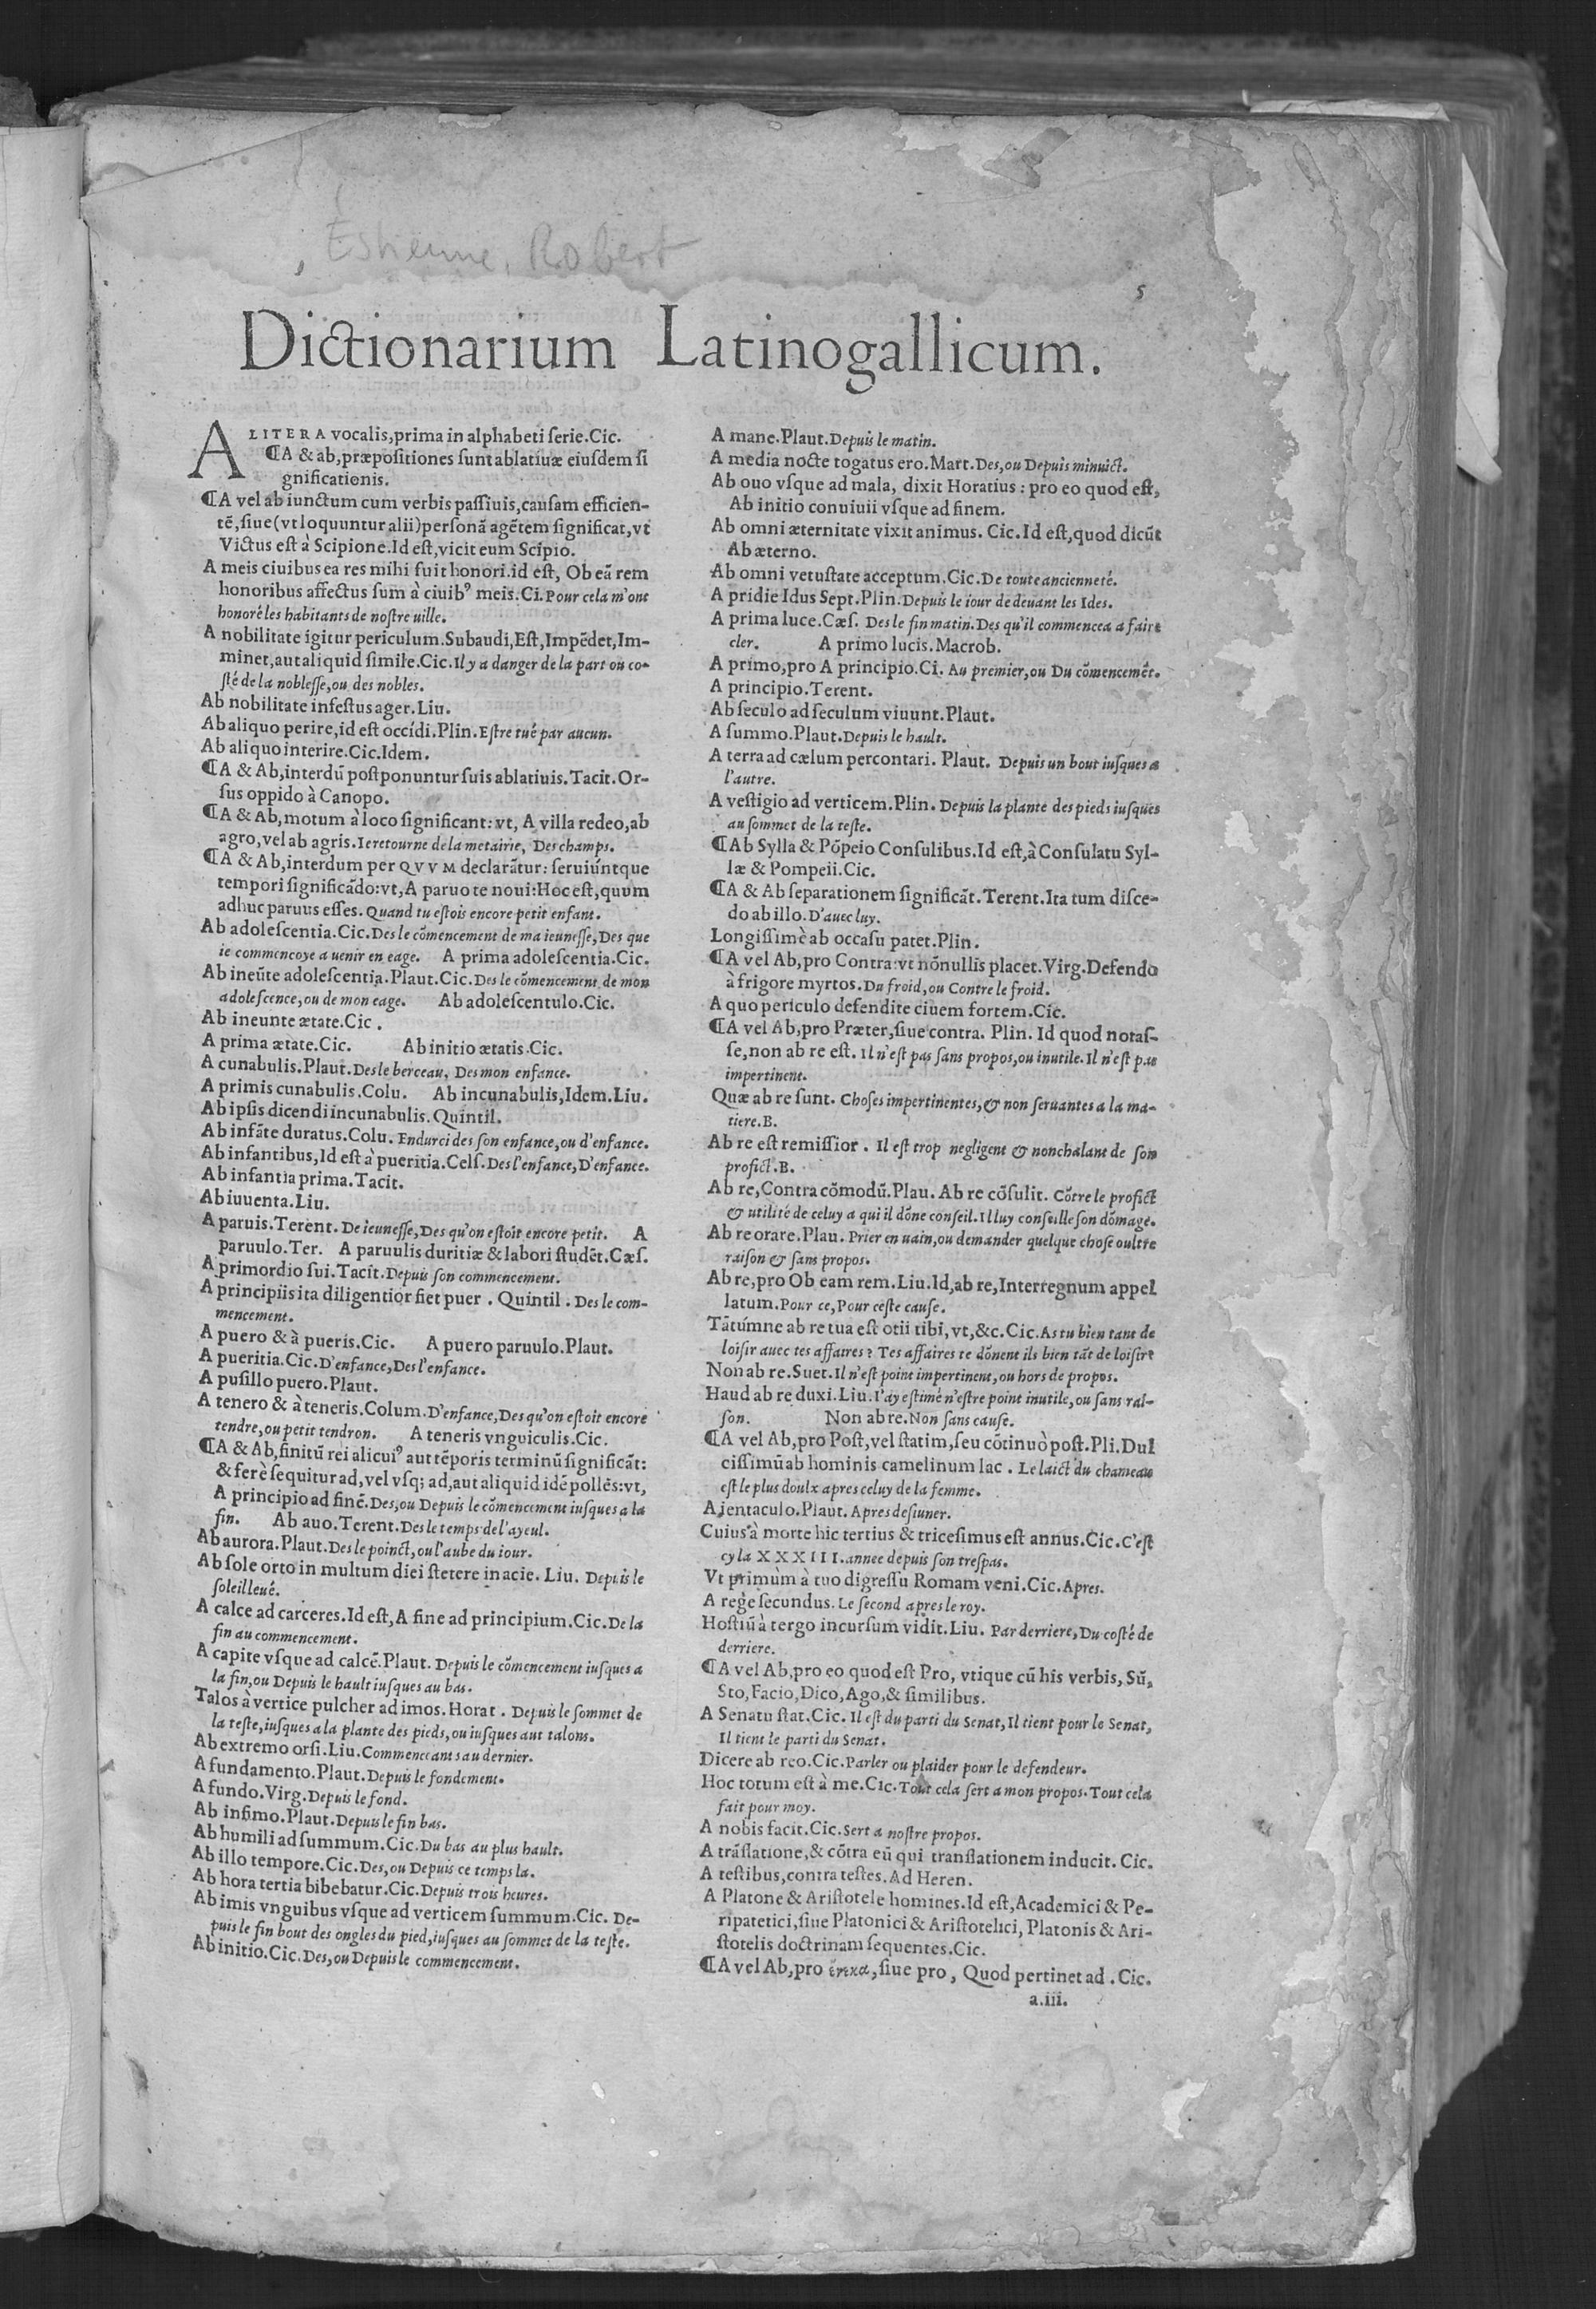 Estienne, Robert
5
Dictionarium Latinogallicum.
A LITERA vocalis,prima in alphabeti ſerie.Cic.
¶A & ab,præpoſitiones ſunt ablatiuæ eiuſdem ſi
gnificationis.
¶A vel ab iunctum cum verbis paſſiuis,cauſam efficien-
tē,ſiue(vt loquuntur alii)perſonā agētem ſignificat,vt
Victus eſt à Scipione.Id eſt,vicit eum Scipio.
A meis ciuibus ea res mihi fuit honori.id eſt, Ob eā rem
honoribus affectus ſum à ciuibꝰ meis.Ci.Pour cela m'ont
honoré les habitants de noſtre uille.
A nobilitate igitur periculum.Subaudi,Eſt,Impēdet,Im-
minet,aut aliquid ſimile.Cic.Il y a danger de la part ou co-
ſté de la nobleſſe,ou des nobles.
Ab nobilitate infeſtus ager.Liu.
Ab aliquo perire,id eſt occídi.Plin.Eſtre tué par aucun.
Ab aliquo interire.Cic.Idem.
¶A & Ab,interdū poſtponuntur ſuis ablatiuis.Tacit.Or-
ſus oppido à Canopo.
¶A & Ab,motum à loco ſignificant:vt, A villa redeo,ab
agro,vel ab agris.Ie retourne de la metairie, Des champs.
¶A & Ab,interdum per QVVM declarātur: ſeruiúntque
tempori ſignificādo:vt,A paruo te noui:Hoc eſt,quum
adhuc paruus eſſes.Quand tu eſtois encore petit enfant.
Ab adoleſcentia.Cic.Des le cōmencement de ma ieuneſſe,Des que
ie commencoye a uenir en eage. A prima adoleſcentia.Cic.
Ab ineūte adoleſcentia.Plaut.Cic.Des le cōmencement de mon
adoleſcence,ou de mon eage. Ab adoleſcentulo.Cic.
Ab ineunte ætate.Cic.
A prima ætate.Cic. Ab initio ætatis.Cic.
A cunabulis.Plaut.Des le berceau, Des mon enfance.
A primis cunabulis.Colu. Ab incunabulis,Idem.Liu.
Ab ipſis dicendi incunabulis.Quintil.
Ab infāte duratus.Colu.Endurci des ſon enfance,ou d'enfance.
Ab infantibus,Id eſt à pueritia.Celſ.Des l'enfance,D'enfance.
Ab infantia prima.Tacit.
Ab iuuenta.Liu.
A paruis.Terent.De ieuneſſe,Des qu'on eſtoit encore petit. A
paruulo.Ter. A paruulis duritiæ & labori ſtudēt.Cæſ.
A primordio ſui.Tacit.Depuis ſon commencement.
A principiis ita diligentior fiet puer . Quintil . Des le com-
mencement.
A puero & à pueris.Cic. A puero paruulo.Plaut.
A pueritia.Cic.D'enfance,Des l'enfance.
A puſillo puero.Plaut.
A tenero & à teneris.Colum.D'enfance,Des qu'on eſtoit encore
tendre,ou petit tendron. A teneris vnguiculis.Cic.
¶A & Ab,finitū rei alicuiꝰ aut tēporis terminū ſignificāt:
& ferè ſequitur ad,vel vſq; ad,aut aliquid idē pollēs:vt,
A principio ad finē.Des,ou Depuis le cōmencement iuſques a la
fin. Ab auo.Terent.Des le temps de l'ayeul.
Ab aurora.Plaut.Des le poinct,ou l'aube du iour.
Ab ſole orto in multum diei ſtetere in acie. Liu. Depuis le
ſoleil leué.
A calce ad carceres.Id eſt,A fine ad principium.Cic.De la
fin au commencement.
A capite vſque ad calcē.Plaut. Depuis le cōmencement iuſques a
la fin,ou Depuis le hault iuſques au bas.
Talos à vertice pulcher ad imos.Horat . Depuis le ſommet de
la teſte,iuſques a la plante des pieds,ou iuſques aut talons.
Ab extremo orſi.Liu.Commenceants au dernier.
A fundamento.Plaut.Depuis le fondement.
A fundo.Virg.Depuis le fond.
Ab infimo.Plaut.Depuis le fin bas.
Ab humili ad ſummum.Cic.Du bas au plus hault.
Ab illo tempore.Cic.Des,ou Depuis ce temps la.
Ab hora tertia bibebatur.Cic.Depuis trois heures.
Ab imis vnguibus vſque ad verticem ſummum.Cic. De-
puis le fin bout des ongles du pied,iuſques au ſommet de la teſte.
Ab initio.Cic.Des,ou Depuis le commencement.
A mane.Plaut.Depuis le matin.
A media nocte togatus ero.Mart.Des,ou Depuis minuict.
Ab ouo vſque ad mala, dixit Horatius : pro eo quod eſt,
Ab initio conuiuii vſque ad finem.
Ab omni æternitate vixit animus. Cic.Id eſt,quod dicūt
Ab æterno.
Ab omni vetuſtate acceptum.Cic.De toute ancienneté.
A pridie Idus Sept.Plin.Depuis le iour de deuant les Ides.
A prima luce.Cæſ. Des le fin matin.Des qu'il commencea a faire
cler. A primo lucis.Macrob.
A primo,pro A principio.Ci. Au premier,ou Du cōmencemēt.
A principio.Terent.
Ab ſeculo ad ſeculum viuunt.Plaut.
A ſummo.Plaut.Depuis le hault.
A terra ad cælum percontari. Plaut. Depuis un bout iuſques a
l'autre.
A veſtigio ad verticem.Plin. Depuis la plante des pieds iuſques
au ſommet de la teſte.
¶Ab Sylla & Pōpeio Conſulibus.Id eſt,à Conſulatu Syl-
læ & Pompeii.Cic.
¶A & Ab ſeparationem ſignificāt.Terent.Ita tum diſce-
do ab illo.D'auec luy.
Longiſſimè ab occaſu patet.Plin.
¶A vel Ab,pro Contra:vt nōnullis placet.Virg.Defendo
à frigore myrtos.Du froid,ou Contre le froid.
A quo periculo defendite ciuem fortem.Cic.
¶A vel Ab,pro Præter,ſiue contra. Plin. Id quod notaſ-
ſe,non ab re eſt. Il n'eſt pas ſans propos,ou inutile.Il n'eſt pas
impertinent.
Quæ ab re ſunt. Choſes impertinentes,& non ſeruantes a la ma-
tiere.B.
Ab re eſt remiſſior . Il eſt trop negligent & nonchalant de ſon
profict.B.
Ab re,Contra cōmodū.Plau. Ab re cōſulit. Cōtre le profict
& utilité de celuy a qui il dōne conſeil.Il luy conſeille ſon dōmage.
Ab re orare.Plau. Prier en uain,ou demander quelque choſe oultre
raiſon & ſans propos.
Ab re,pro Ob eam rem.Liu.Id,ab re,Interregnum appel
latum.Pour ce,Pour ceſte cauſe.
Tātúmne ab re tua eſt otii tibi,vt,&c.Cic.As tu bien tant de
loiſir auec tes affaires? Tes affaires te dōnent ils bien tāt de loiſir?
Non ab re.Suet.Il n'eſt point impertinent,ou hors de propos.
Haud ab re duxi.Liu.I'ay eſtimé n'eſtre point inutile,ou ſans rai-
ſon. Non ab re.Non ſans cauſe.
¶A vel Ab,pro Poſt,vel ſtatim,ſeu cōtinuò poſt.Pli.Dul
ciſſimū ab hominis camelinum lac . Le laict du chameau
eſt le plus doulx apres celuy de la femme.
A jentaculo.Plaut. Apres deſiuner.
Cuius à morte hic tertius & triceſimus eſt annus.Cic.C'eſt
cy la XXXIII.annee depuis ſon treſpas.
Vt primùm à tuo digreſſu Romam veni.Cic.Apres.
A rege ſecundus. Le ſecond apres le roy.
Hoſtiū à tergo incurſum vidit.Liu. Par derriere,Du coſté de
derriere.
¶A vel Ab,pro eo quod eſt Pro, vtique cū his verbis, Sū,
Sto,Facio,Dico,Ago,& ſimilibus.
A Senatu ſtat.Cic. Il eſt du parti du Senat,Il tient pour le Senat,
Il tient le parti du Senat.
Dicere ab reo.Cic.Parler ou plaider pour le defendeur.
Hoc totum eſt à me.Cic.Tout cela ſert a mon propos.Tout cela
fait pour moy.
A nobis facit.Cic.Sert a noſtre propos.
A trāſlatione,& cōtra eū qui tranſlationem inducit. Cic.
A teſtibus,contra teſtes.Ad Heren.
A Platone & Ariſtotele homines.Id eſt,Academici & Pe-
ripatetici,ſiue Platonici & Ariſtotelici, Platonis & Ari-
ſtotelis doctrinam ſequentes.Cic.
¶A vel Ab,pro ἕνεκα,ſiue pro, Quod pertinet ad . Cic.
a.iii.